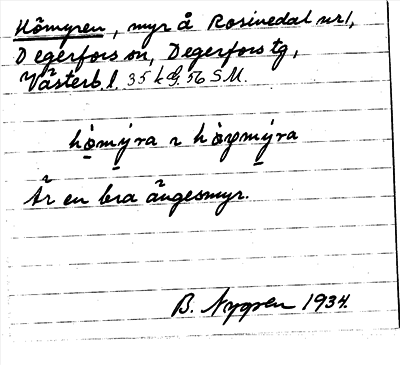 Hömyren, myr å Rosinedal nr 1,
Degerfors sn, Degerfors tg,
Västerb. l. 35 k G. 56 S M.
hòmýra ı hòymýra
Är en bra ängesmyr.
B. Nygren 1934.